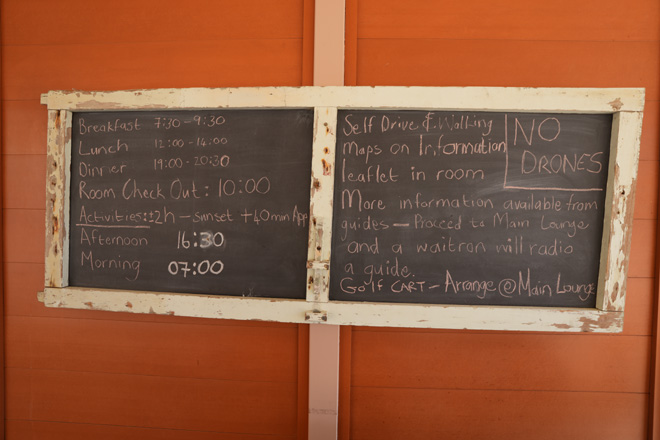 Breakfast 7:30-9:30
Lunch 12:00-14:00
Dinner 19:00-20:30
Room Check Out: 10:00
Activities:±2h - Sunset +40min App
Afternoon 16:30
Morning 07:00
Self Drive & Walking
maps on Information
leaflet in room
NO
DRONES
More information available from
guides - Proceed to Main Lounge
and a waitron will radio
a guide.
Golf CART - Arrange @ Main Lounge